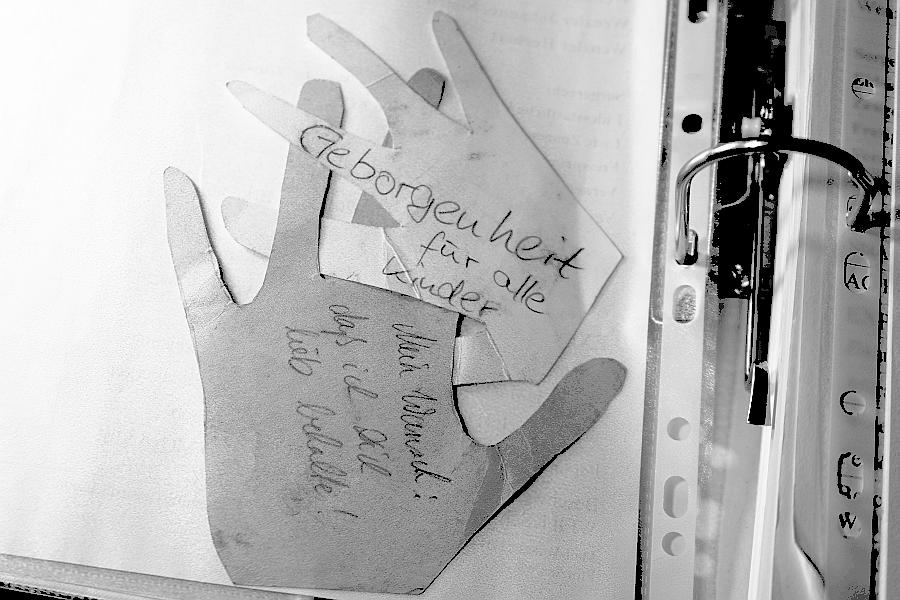 Geborgenheit
für alle
Kinder
Mein Wunsch:
daß ich Dich
lieb behalte!